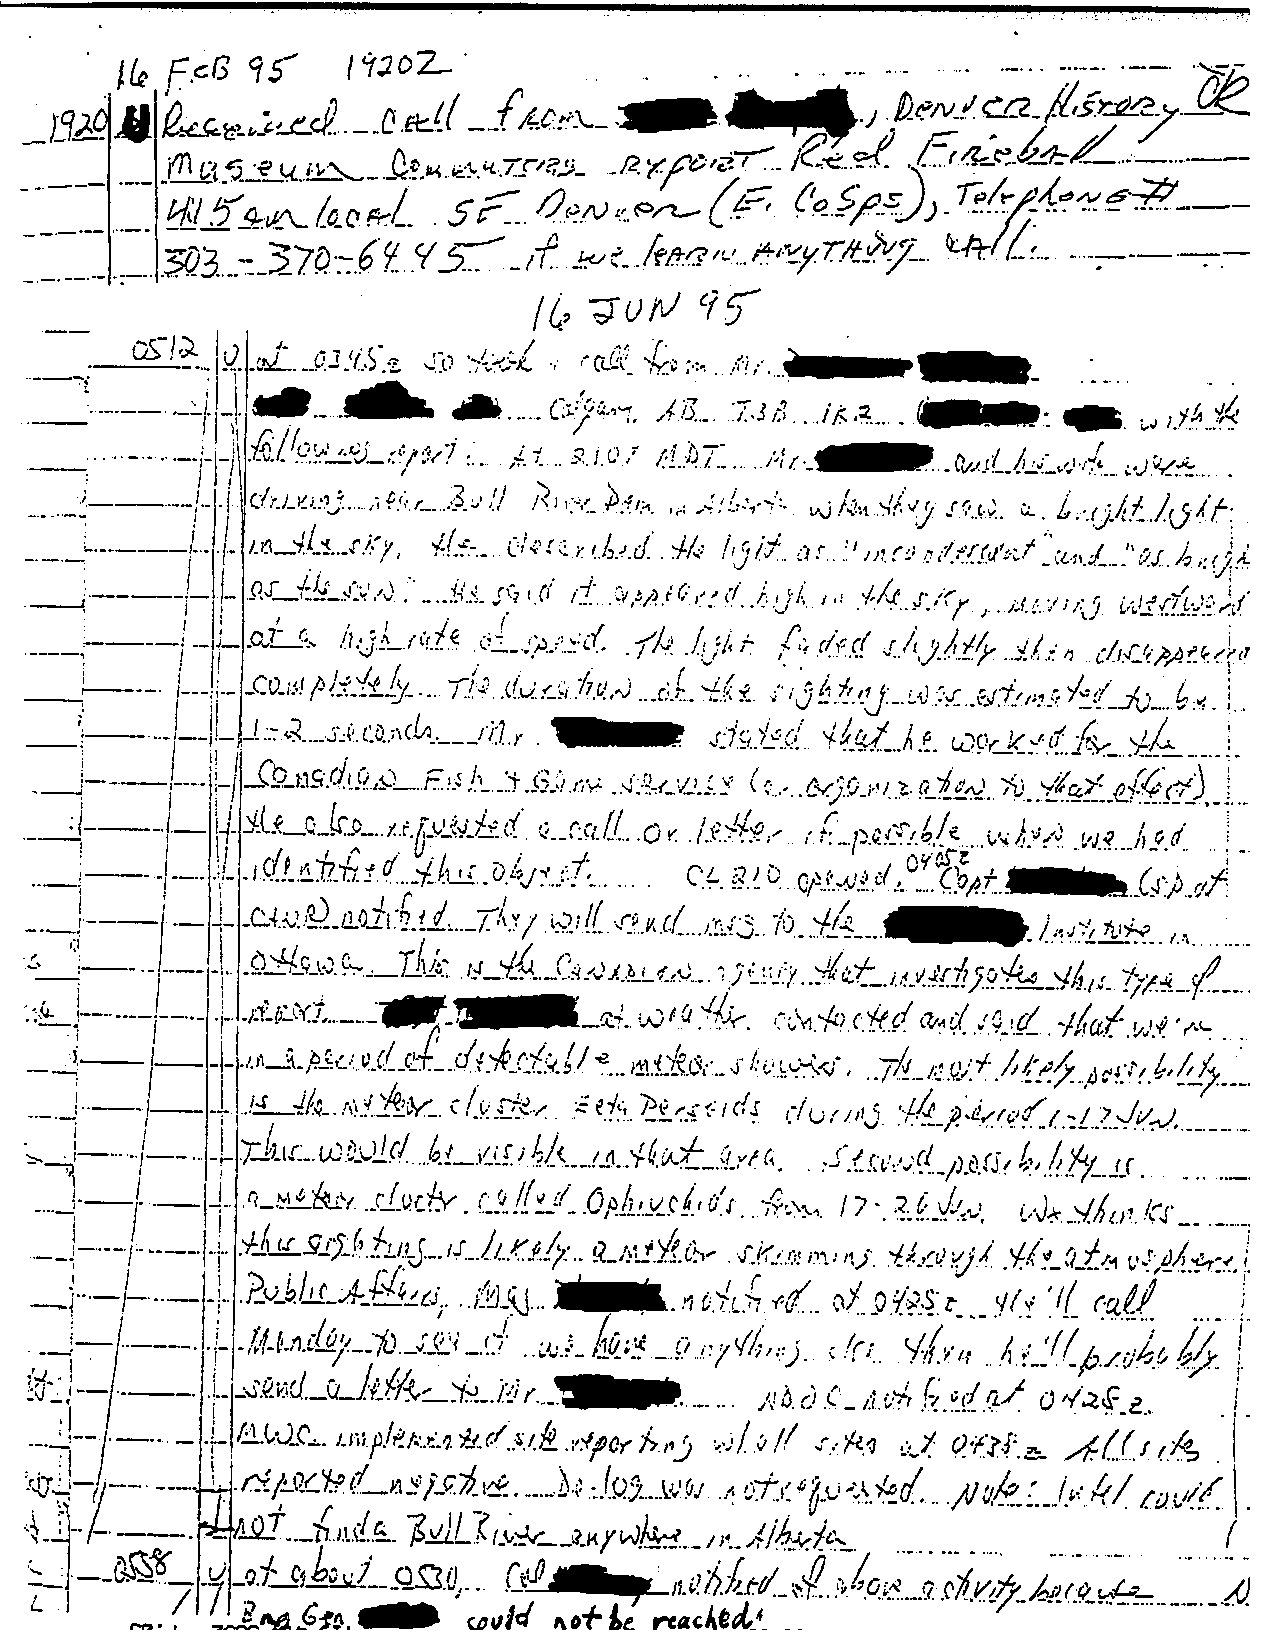 16 FEB 95 1920Z
1920 U Received call from , DENVER HISTORY CR
Museum Commuters report Red Fireball
415 am local SE Denver (E. CoSps), Telephone #
303-370-6445 if we learn ANYTHING CALL.
16 JUN 95
0512 U at 0345z SD took a call from Mr.
Calgary, AB T3B 1K2 with the
following report: At 2107 MDT Mr. and his wife were
driving near Bull River Dam in Alberta when they saw a bright light
in the sky. He described the light as "incandescent" and "as bright
as the sun". He said it appeared high in the sky, moving westward
at a high rate of speed. The light faded slightly then disappeared
completely. The duration of the sighting was estimated to be
1-2 seconds. Mr. stated that he worked for the
Canadian Fish & Game service (or organization to that effect)
He also requested a call or letter if possible when we had
identified this object. CL 210 opened. 0405z Capt (sp) at
notified. They will send msg to the Institute in
Ottawa. This is the Canadian agency that investigates this type of
report. at weather contacted and said that we're
in a period of detectable meteor showers. The most likely possibility
is the meteor cluster Zeta Perseids during the period 1-17 JUN.
This would be visible in that area. Second possibility is
a meteor clustr called Ophiuchids from 17-26 Jun. Wx thinks
this sighting is likely a meteor skimming through the atmosphere.
Public Affairs, Maj notified at 0425z He'll call
Monday to see if we have anything else then he'll probably
send a letter to Mr. notified at 0428z.
MWC implemented site reporting w/all sites at 0438z All sites
reported negative. De-log was not requested. Note: Intel could
not find a Bull River anywhere in Alberta
0558 U at about 0530, Col notified of above activity because N
Brig Gen. could not be reached.